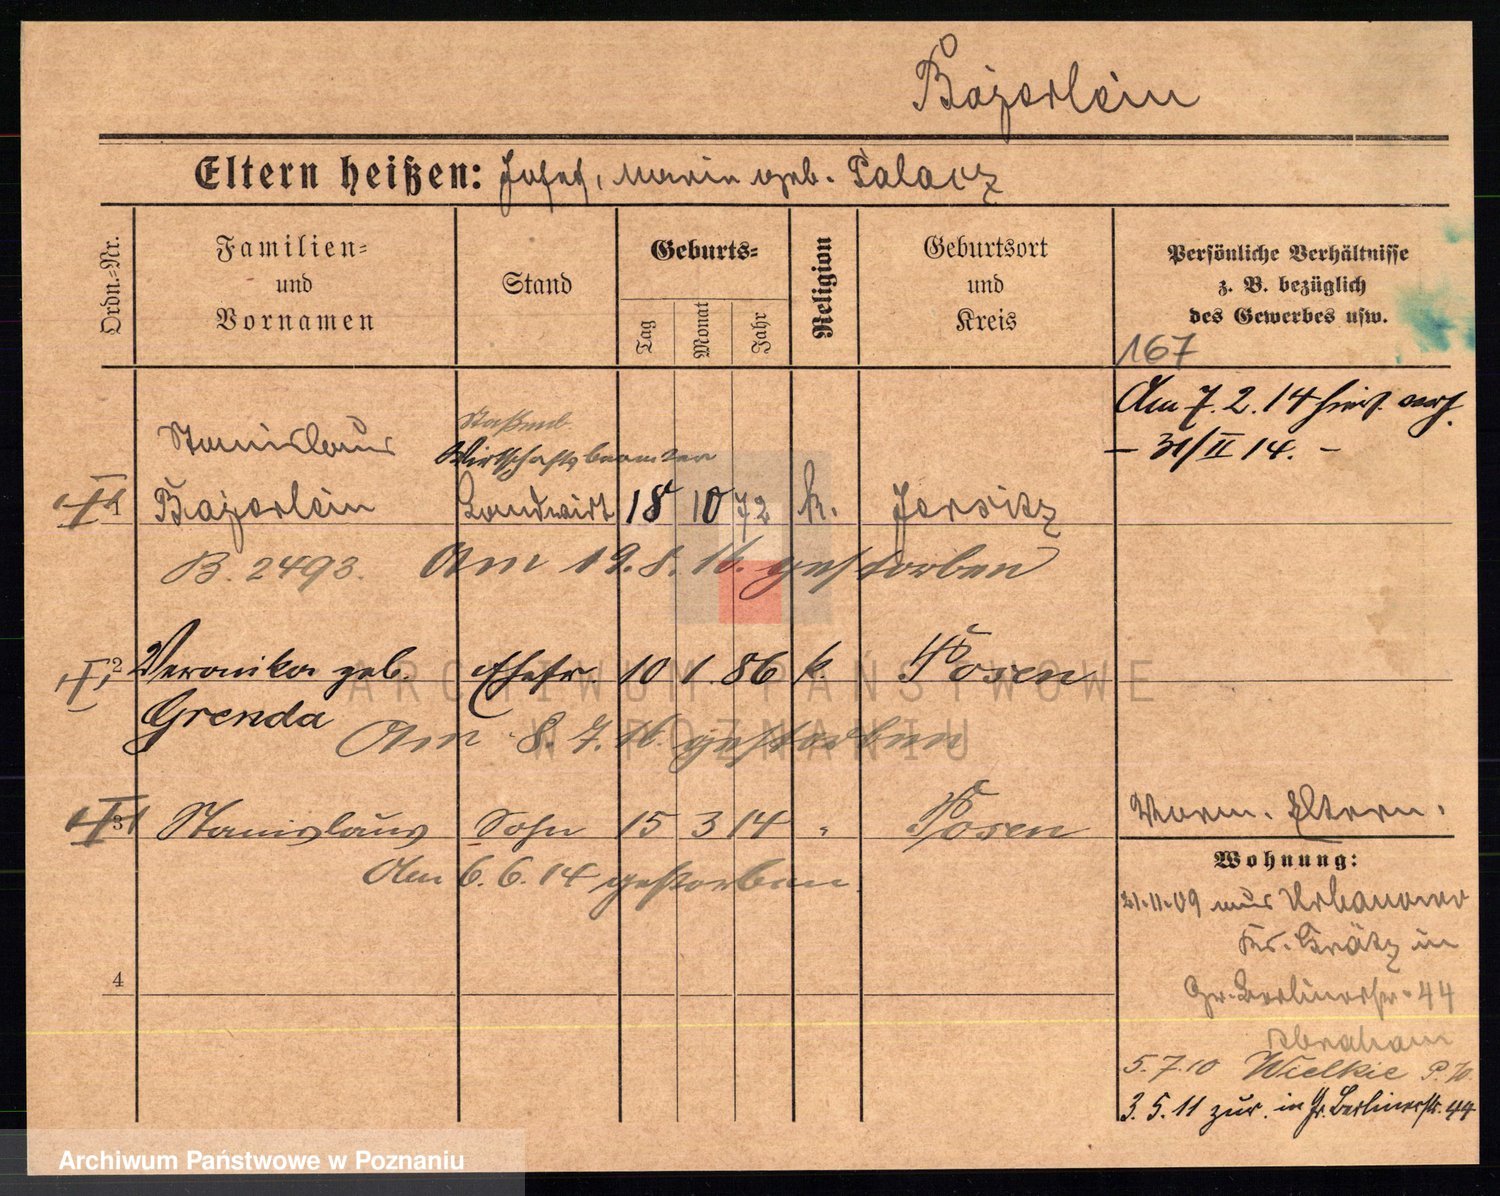 Bajerlein
Eltern heißen: Josef, Marie geb. Palacz
Ordn.-Nr.
Familien- und Vornamen
Stand
Geburts-
Tag
Monat
Jahr
Religion
Geburtsort und Kreis
Persönliche Verhältnisse z. B. bezüglich des Gewerbes usw.
167
Am 7. 2. 14
- 31/II 14. -
Stanislaus
Wirtschaftsbeamter
1 Bajerlein Landwirt 18 10 72 k. Jersitz
B. 2493. Am 19. 8. 16. gestorben
2 Veronika geb. Ehefr. 10 1. 86 k. Posen
Grenda
Am 8. 7. 16. gestorben
3 Stanislaus Sohn 15 3 14 " Posen
Am 6. 6. 14 gestorben.
Vorm. Eltern.
4
Wohnung:
21.11.09 aus Urbanowo
Kr. Grätz in
Gr. Berlinerstr. 44
Abraham
5.7.10 Wielkie P.W.
3.5.11 zur. in Gr. Berlinerstr. 44
ARCHIWUM PAŃSTWOWE
W POZNANIU
Archiwum Państwowe w Poznaniu